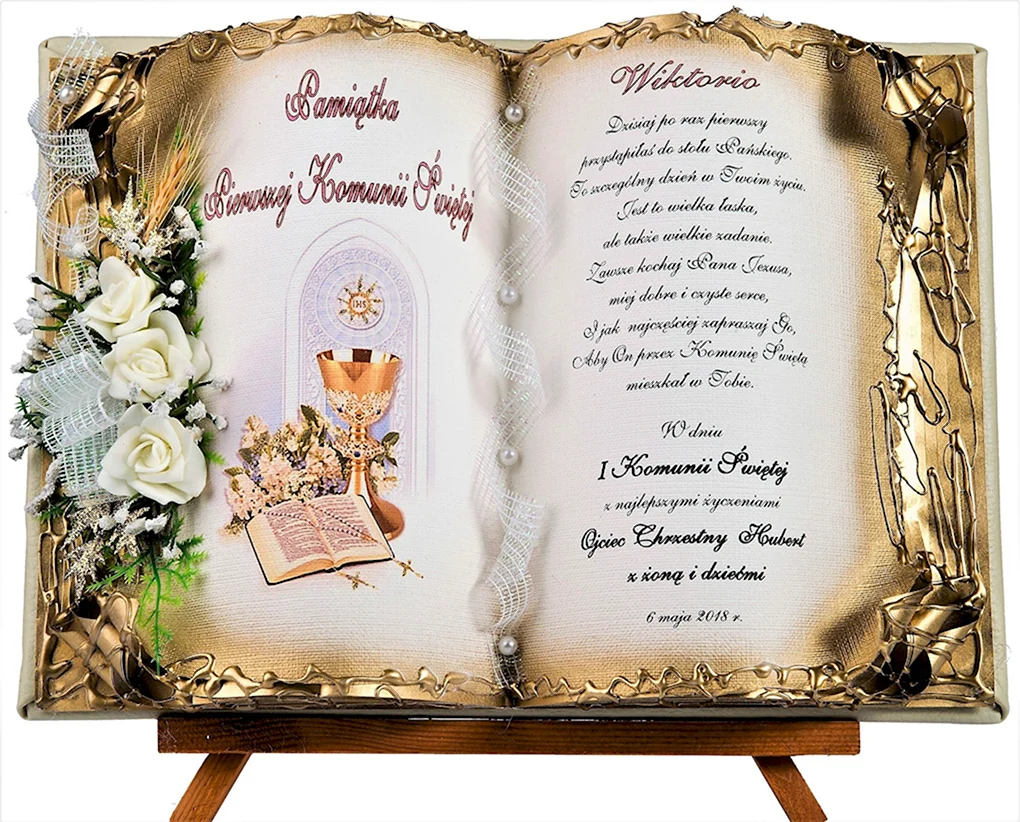 Pamiątka
Pierwszej Komunii Świętej
IHS
Wiktorio
Dzisiaj po raz pierwszy
przystąpiłaś do stołu Pańskiego.
To szczególny dzień w Twoim życiu.
Jest to wielka łaska,
ale także wielkie zadanie.
Zawsze kochaj Pana Jezusa,
miej dobre i czyste serce,
I jak najczęściej zapraszaj Go,
Aby On przez Komunię Świętą
mieszkał w Tobie.
W dniu
I Komunii Świętej
z najlepszymi życzeniami
Ojciec Chrzestny Hubert
z żoną i dziećmi
6 maja 2018 r.